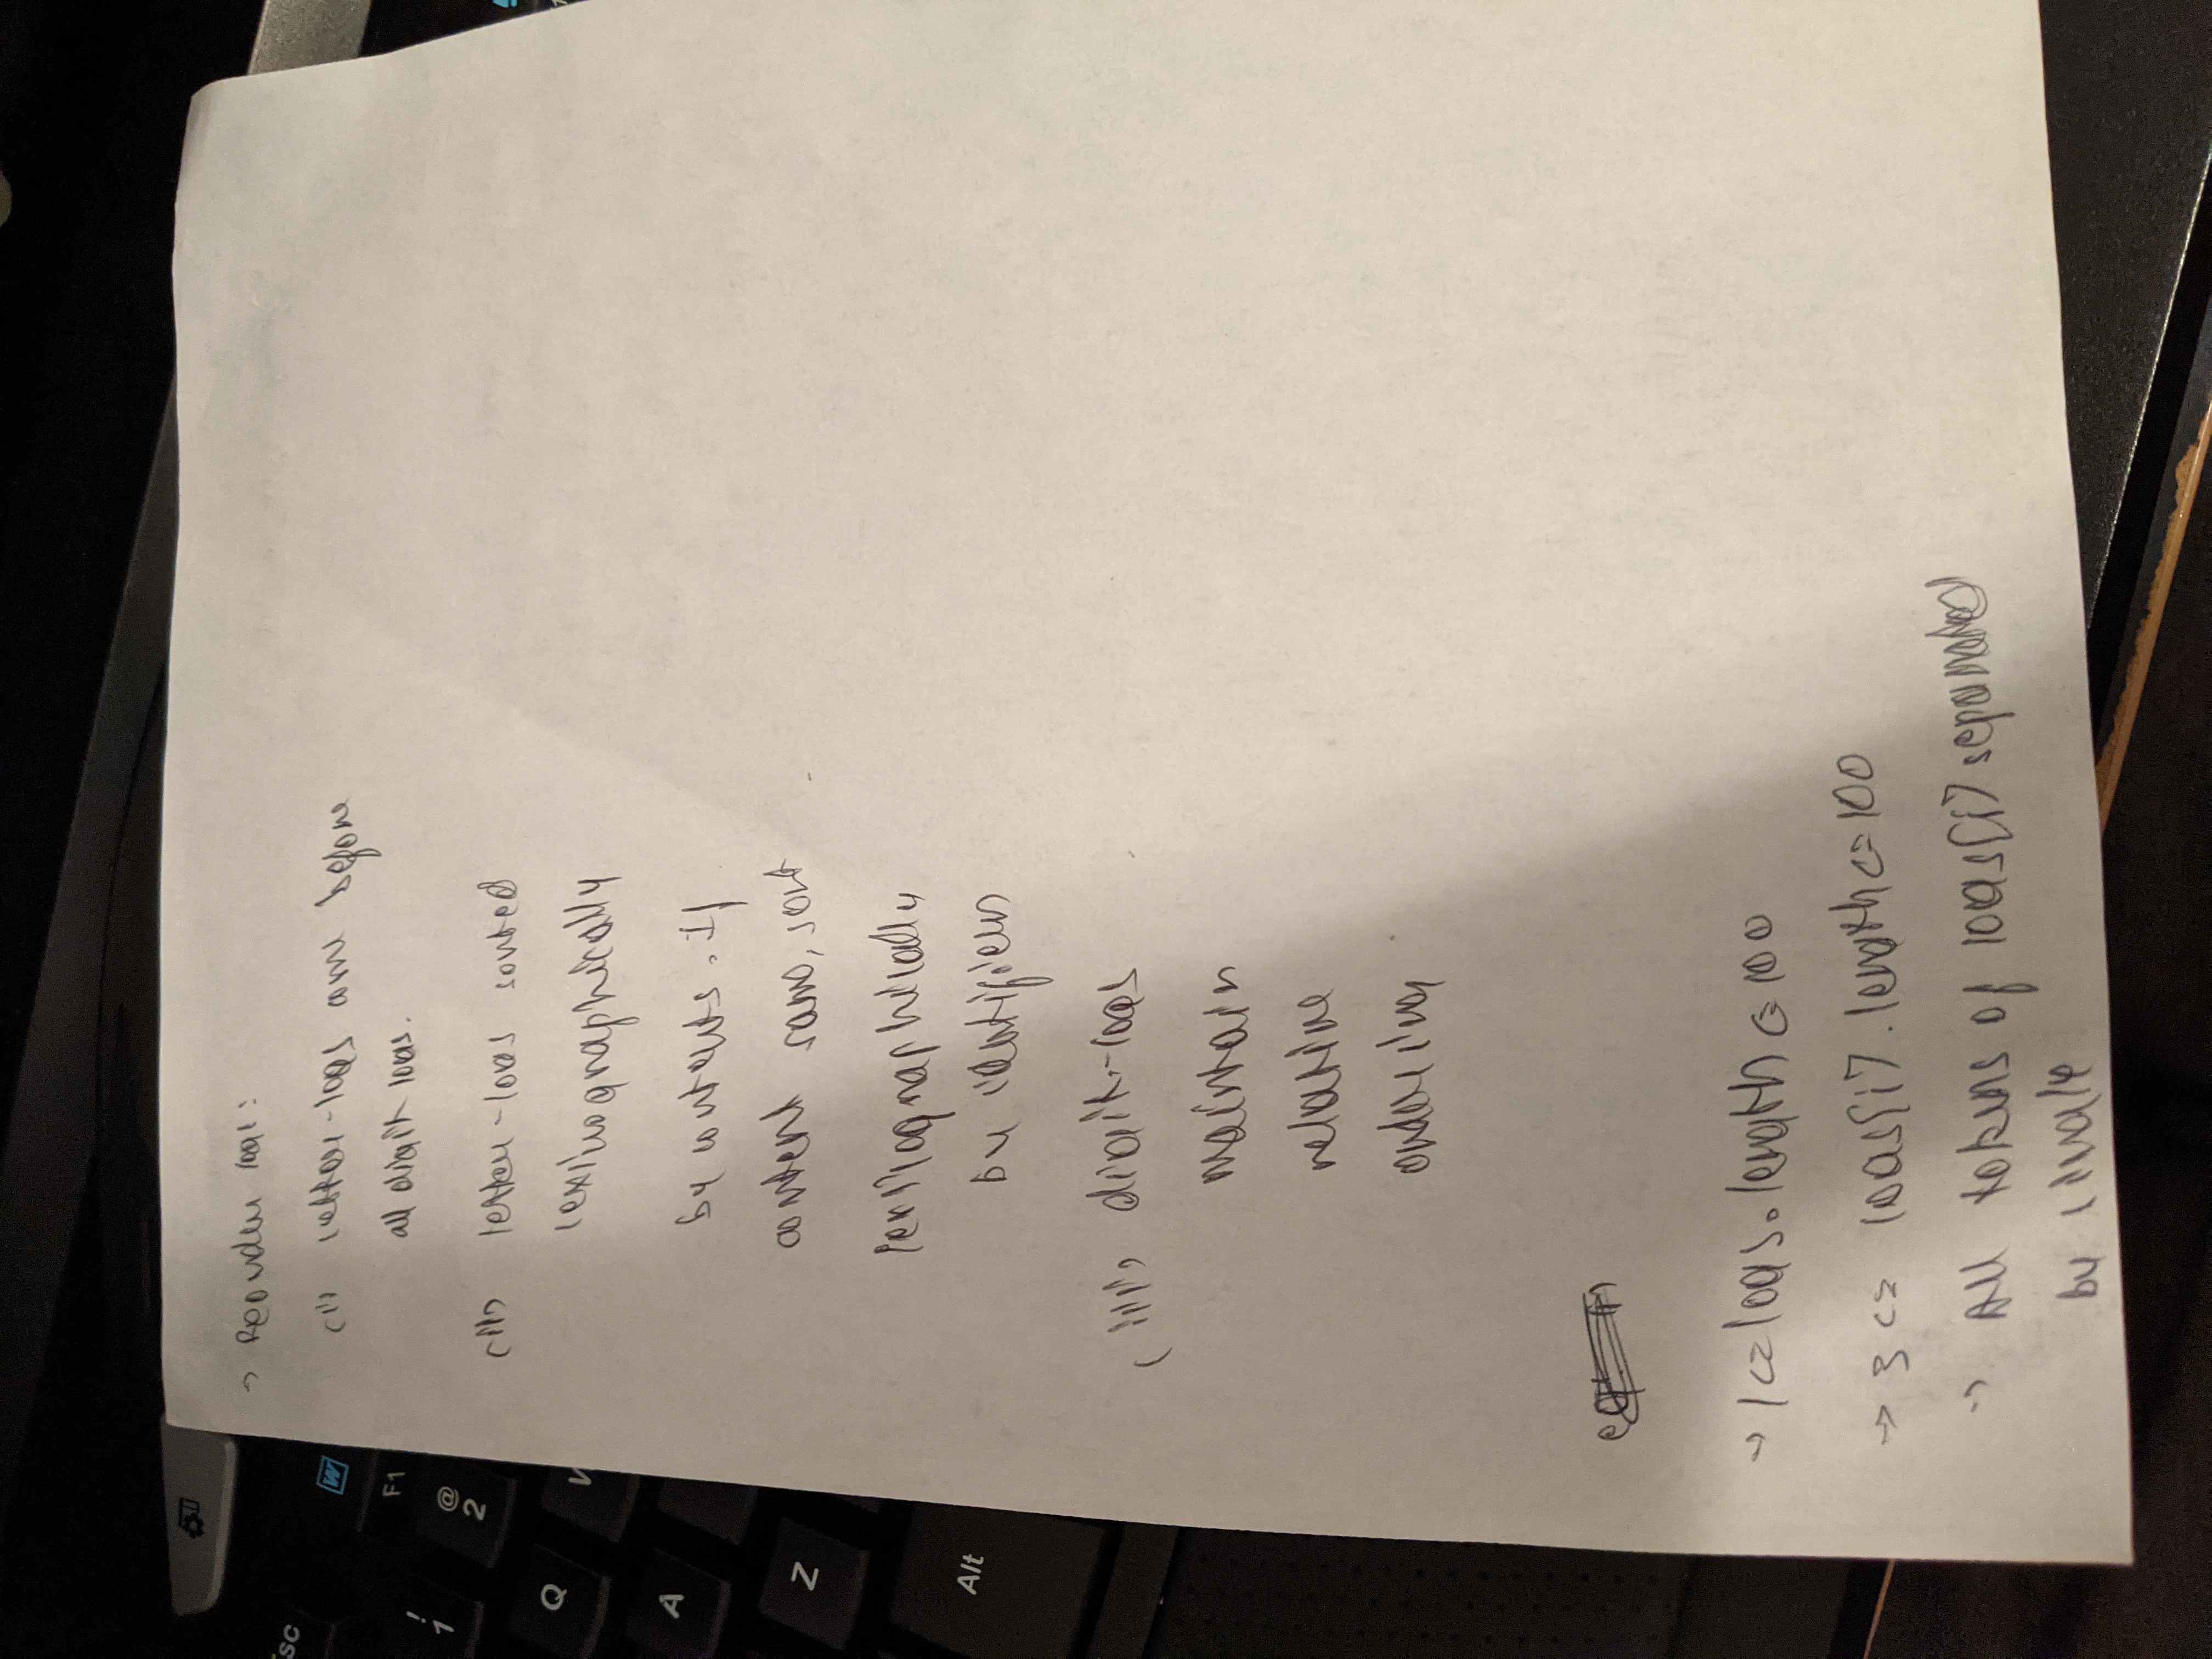 → Reorder logs:
(i) letter-logs come before
all digit logs.
(ii) letter-logs sorted
lexicographically
by contents. If
content same, sort
lexicographically
by identifiers
(iii) digit-logs
maintain
relative
ordering
→ 1<=logs.length<=100
→ 3<= logs[i].length<=100
→ All tokens of logs[i] separated
by single
sc
F1
!
1
@
2
Q
A
Z
Alt
W